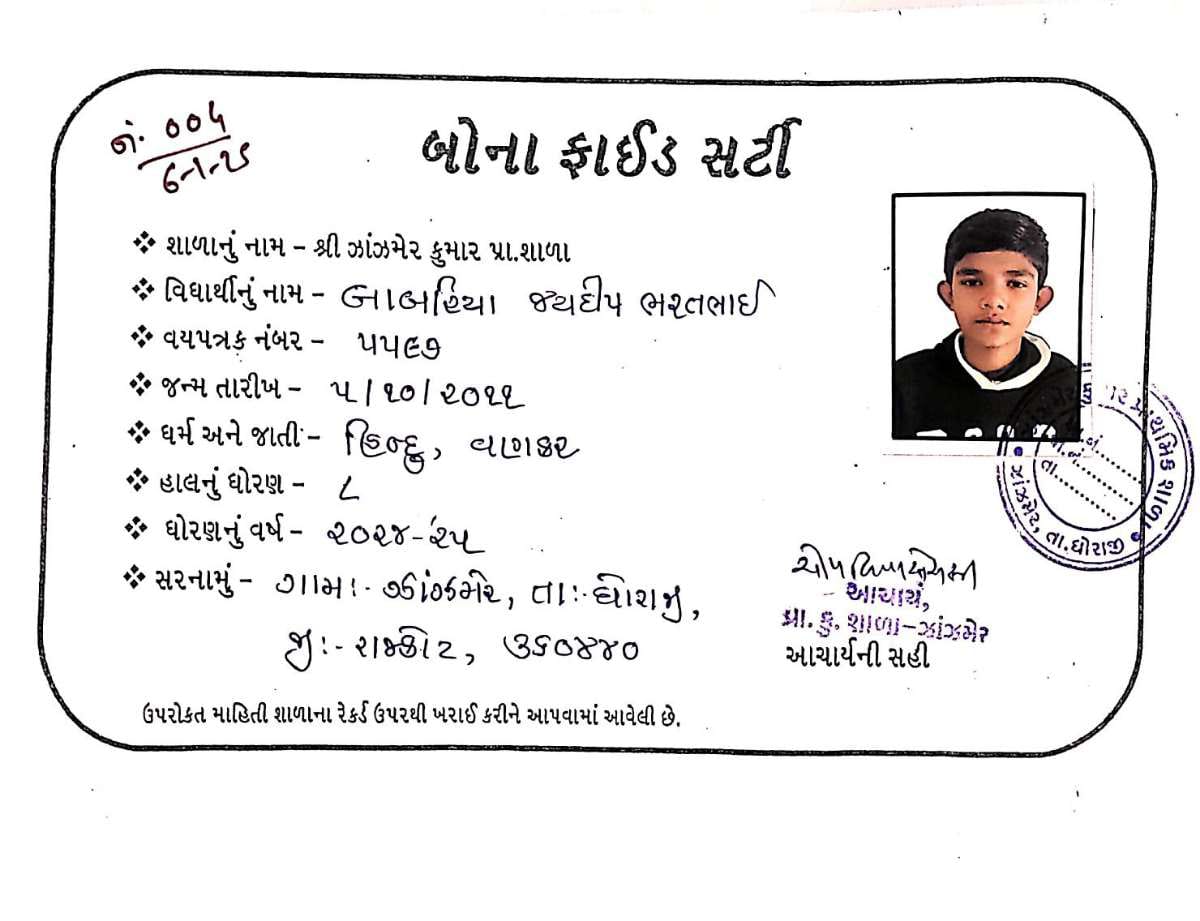 નં. ૦૦૫
૬-૧-૨૫
બોના ફાઈડ સર્ટી
❖ શાળાનું નામ – શ્રી ઝાંઝમેર કુમાર પ્રા.શાળા
❖ વિધાર્થીનું નામ – બાબરિયા જયદીપ ભરતભાઈ
❖ વયપત્રક નંબર – ૫૫૯૭
❖ જન્મ તારીખ – ૫/૧૦/૨૦૧૧
❖ ધર્મ અને જાતી:- હિન્દુ, વાણકર
❖ હાલનું ધોરણ – ૮
❖ ધોરણનું વર્ષ – ૨૦૨૪-૨૫
❖ સરનામું – ગામઃ- ઝાંઝમેર, તાઃ-ધોરાજી,
જીઃ- રાજકોટ, ૩૬૦૪૪૦
આચાર્ય,
પ્રા. કુ. શાળા–ઝાંઝમેર
આચાર્યની સહી
ઝાંઝમેર, તા.ધોરાજી
ઉપરોકત માહિતી શાળાના રેકર્ડ ઉપરથી ખરાઈ કરીને આપવામાં આવેલી છે.